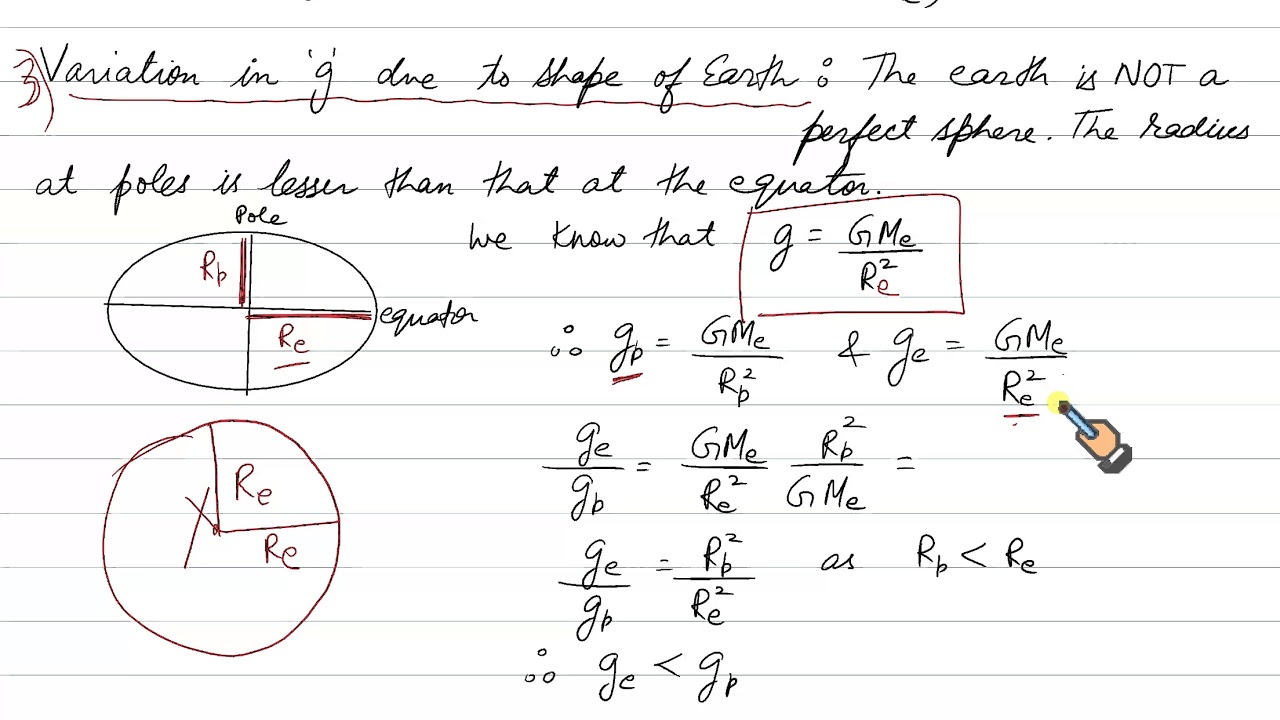 3) Variation in 'g' due to shape of Earth : The earth is NOT a
perfect sphere. The radius
at poles is lesser than that at the equator.
Pole
Rp
Re
equator
We know that g = GMe / Re²
∴ gp = GMe / Rp² & ge = GMe / Re²
ge / gp = GMe / Re² Rp² / GMe =
ge / gp = Rp² / Re² as Rp < Re
∴ ge < gp
Re
Re